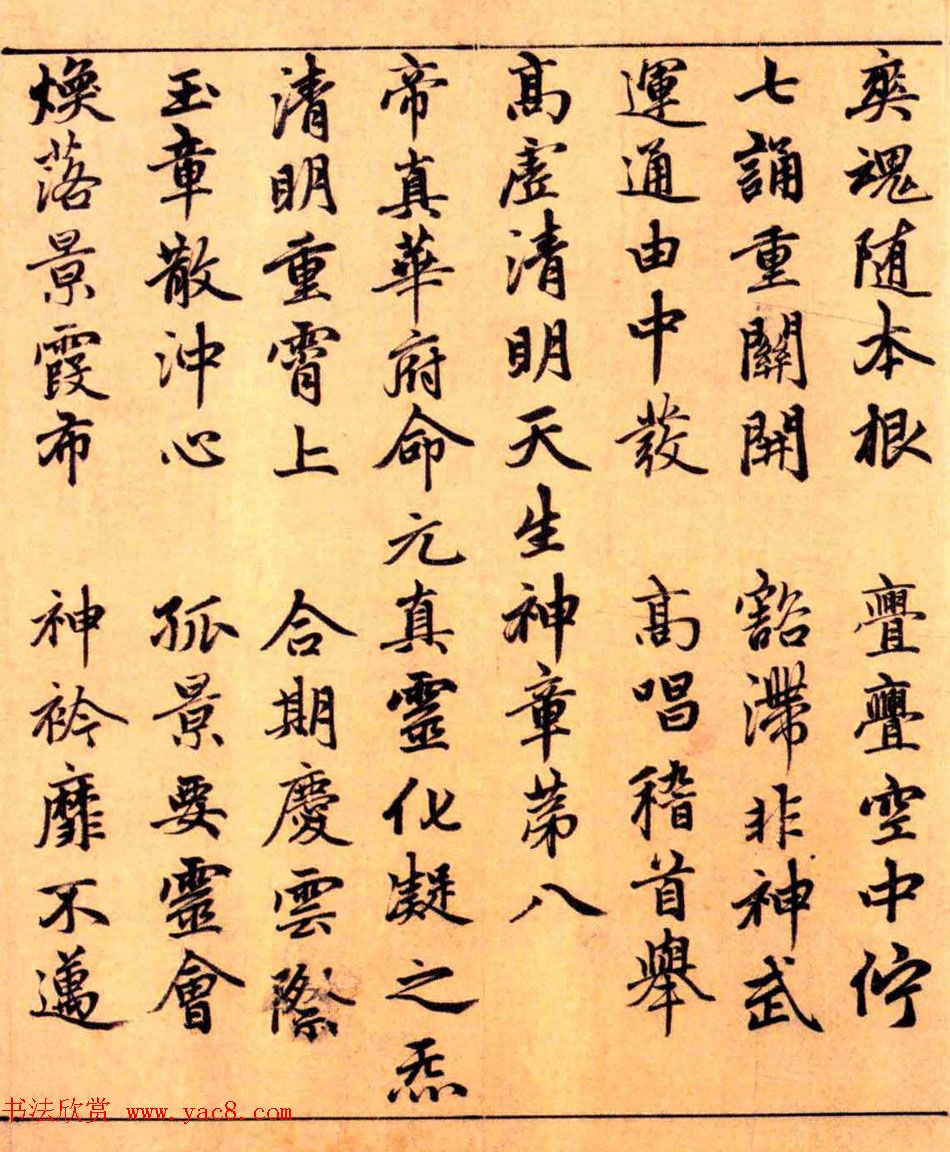 爽魂随本根 亹亹空中佇
七誦重關開 豁滯非神武
運通由中發 高唱稽首舉
高虛清明天生神章第八
帝真華府命元真靈化凝之炁
清明重霄上 合期慶雲際
玉章散沖心 孤景要靈會
煥落景霞布 神衿靡不邁
书法欣赏 www.yac8.com